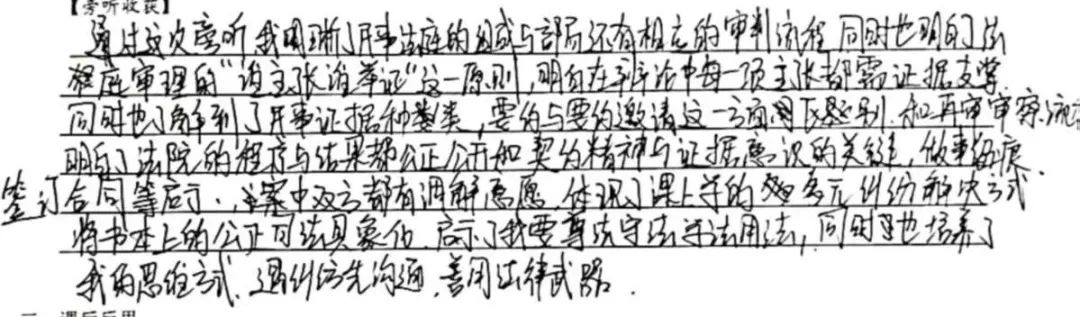 【旁听收获】
通过这次旁听我明晰了民事法庭的组成与部局还有相应的审判流程 同时也明白了法
庭审理的"谁主张谁举证"这一原则,明白在辩论中每一项主张都需证据支撑
同时也了解到了民事证据种类,要约与要约邀请这一方面的区别.和再审审察流程
明白了法院的程序与结果都公正公开和契约精神与证据意识的关键,做事留痕.
签订合同等启示.,本案中双方都有调解意愿,体现了课上学的多元纠纷解决方式
将书本上的公正司法具象化.启示了我要尊法守法学法用法,同时也培养了
我的思维方式.遇纠纷先沟通,善用法律武器.